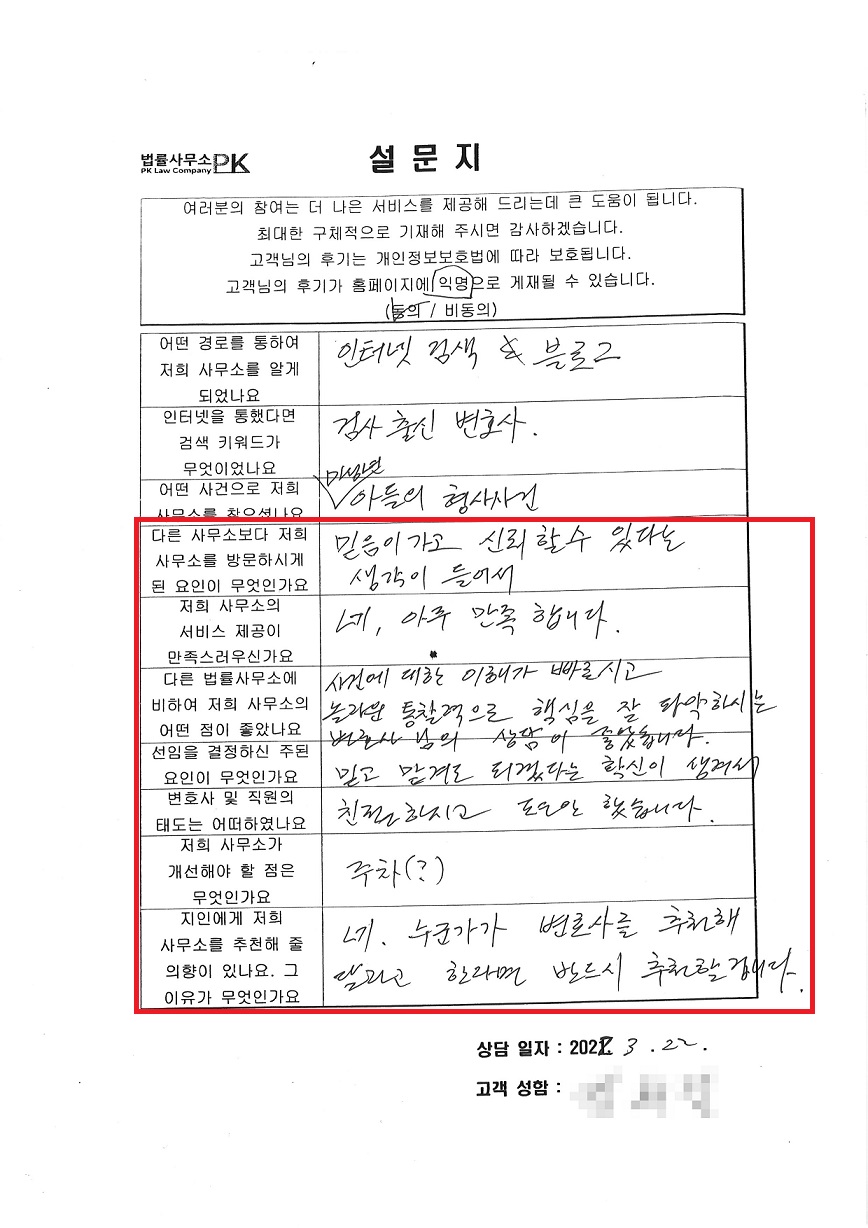 법률사무소PK
PK Law Company
설문지
여러분의 참여는 더 나은 서비스를 제공해 드리는데 큰 도움이 됩니다.
최대한 구체적으로 기재해 주시면 감사하겠습니다.
고객님의 후기는 개인정보보호법에 따라 보호됩니다.
고객님의 후기가 홈페이지에 익명으로 게재될 수 있습니다.
(동의 / 비동의)
어떤 경로를 통하여
저희 사무소를 알게
되었나요
인터넷 검색 & 블로그
인터넷을 통했다면
검색 키워드가
무엇이었나요
검사 출신 변호사.
어떤 사건으로 저희
사무소를 찾으셨나요
미성년
아들의 형사사건
다른 사무소보다 저희
사무소를 방문하시게
된 요인이 무엇인가요
믿음이가고 신뢰할수 있다는
생각이 들어서
저희 사무소의
서비스 제공이
만족스러우신가요
네, 아주 만족합니다.
다른 법률사무소에
비하여 저희 사무소의
어떤 점이 좋았나요
사건에 대한 이해가 빠르시고
놀라운 통찰력으로 핵심을 잘 파악하시는
변호사님의 상담이 좋았습니다.
선임을 결정하신 주된
요인이 무엇인가요
믿고 맡겨도 되겠다는 확신이 생겨서
변호사 및 직원의
태도는 어떠하였나요
친절하시고 편안했습니다.
저희 사무소가
개선해야 할 점은
무엇인가요
주차(?)
지인에게 저희
사무소를 추천해 줄
의향이 있나요. 그
이유가 무엇인가요
네. 누군가가 변호사를 추천해
달라고 한다면 반드시 추천할겁니다.
상담 일자 : 2022 3 . 22 .
고객 성함 :